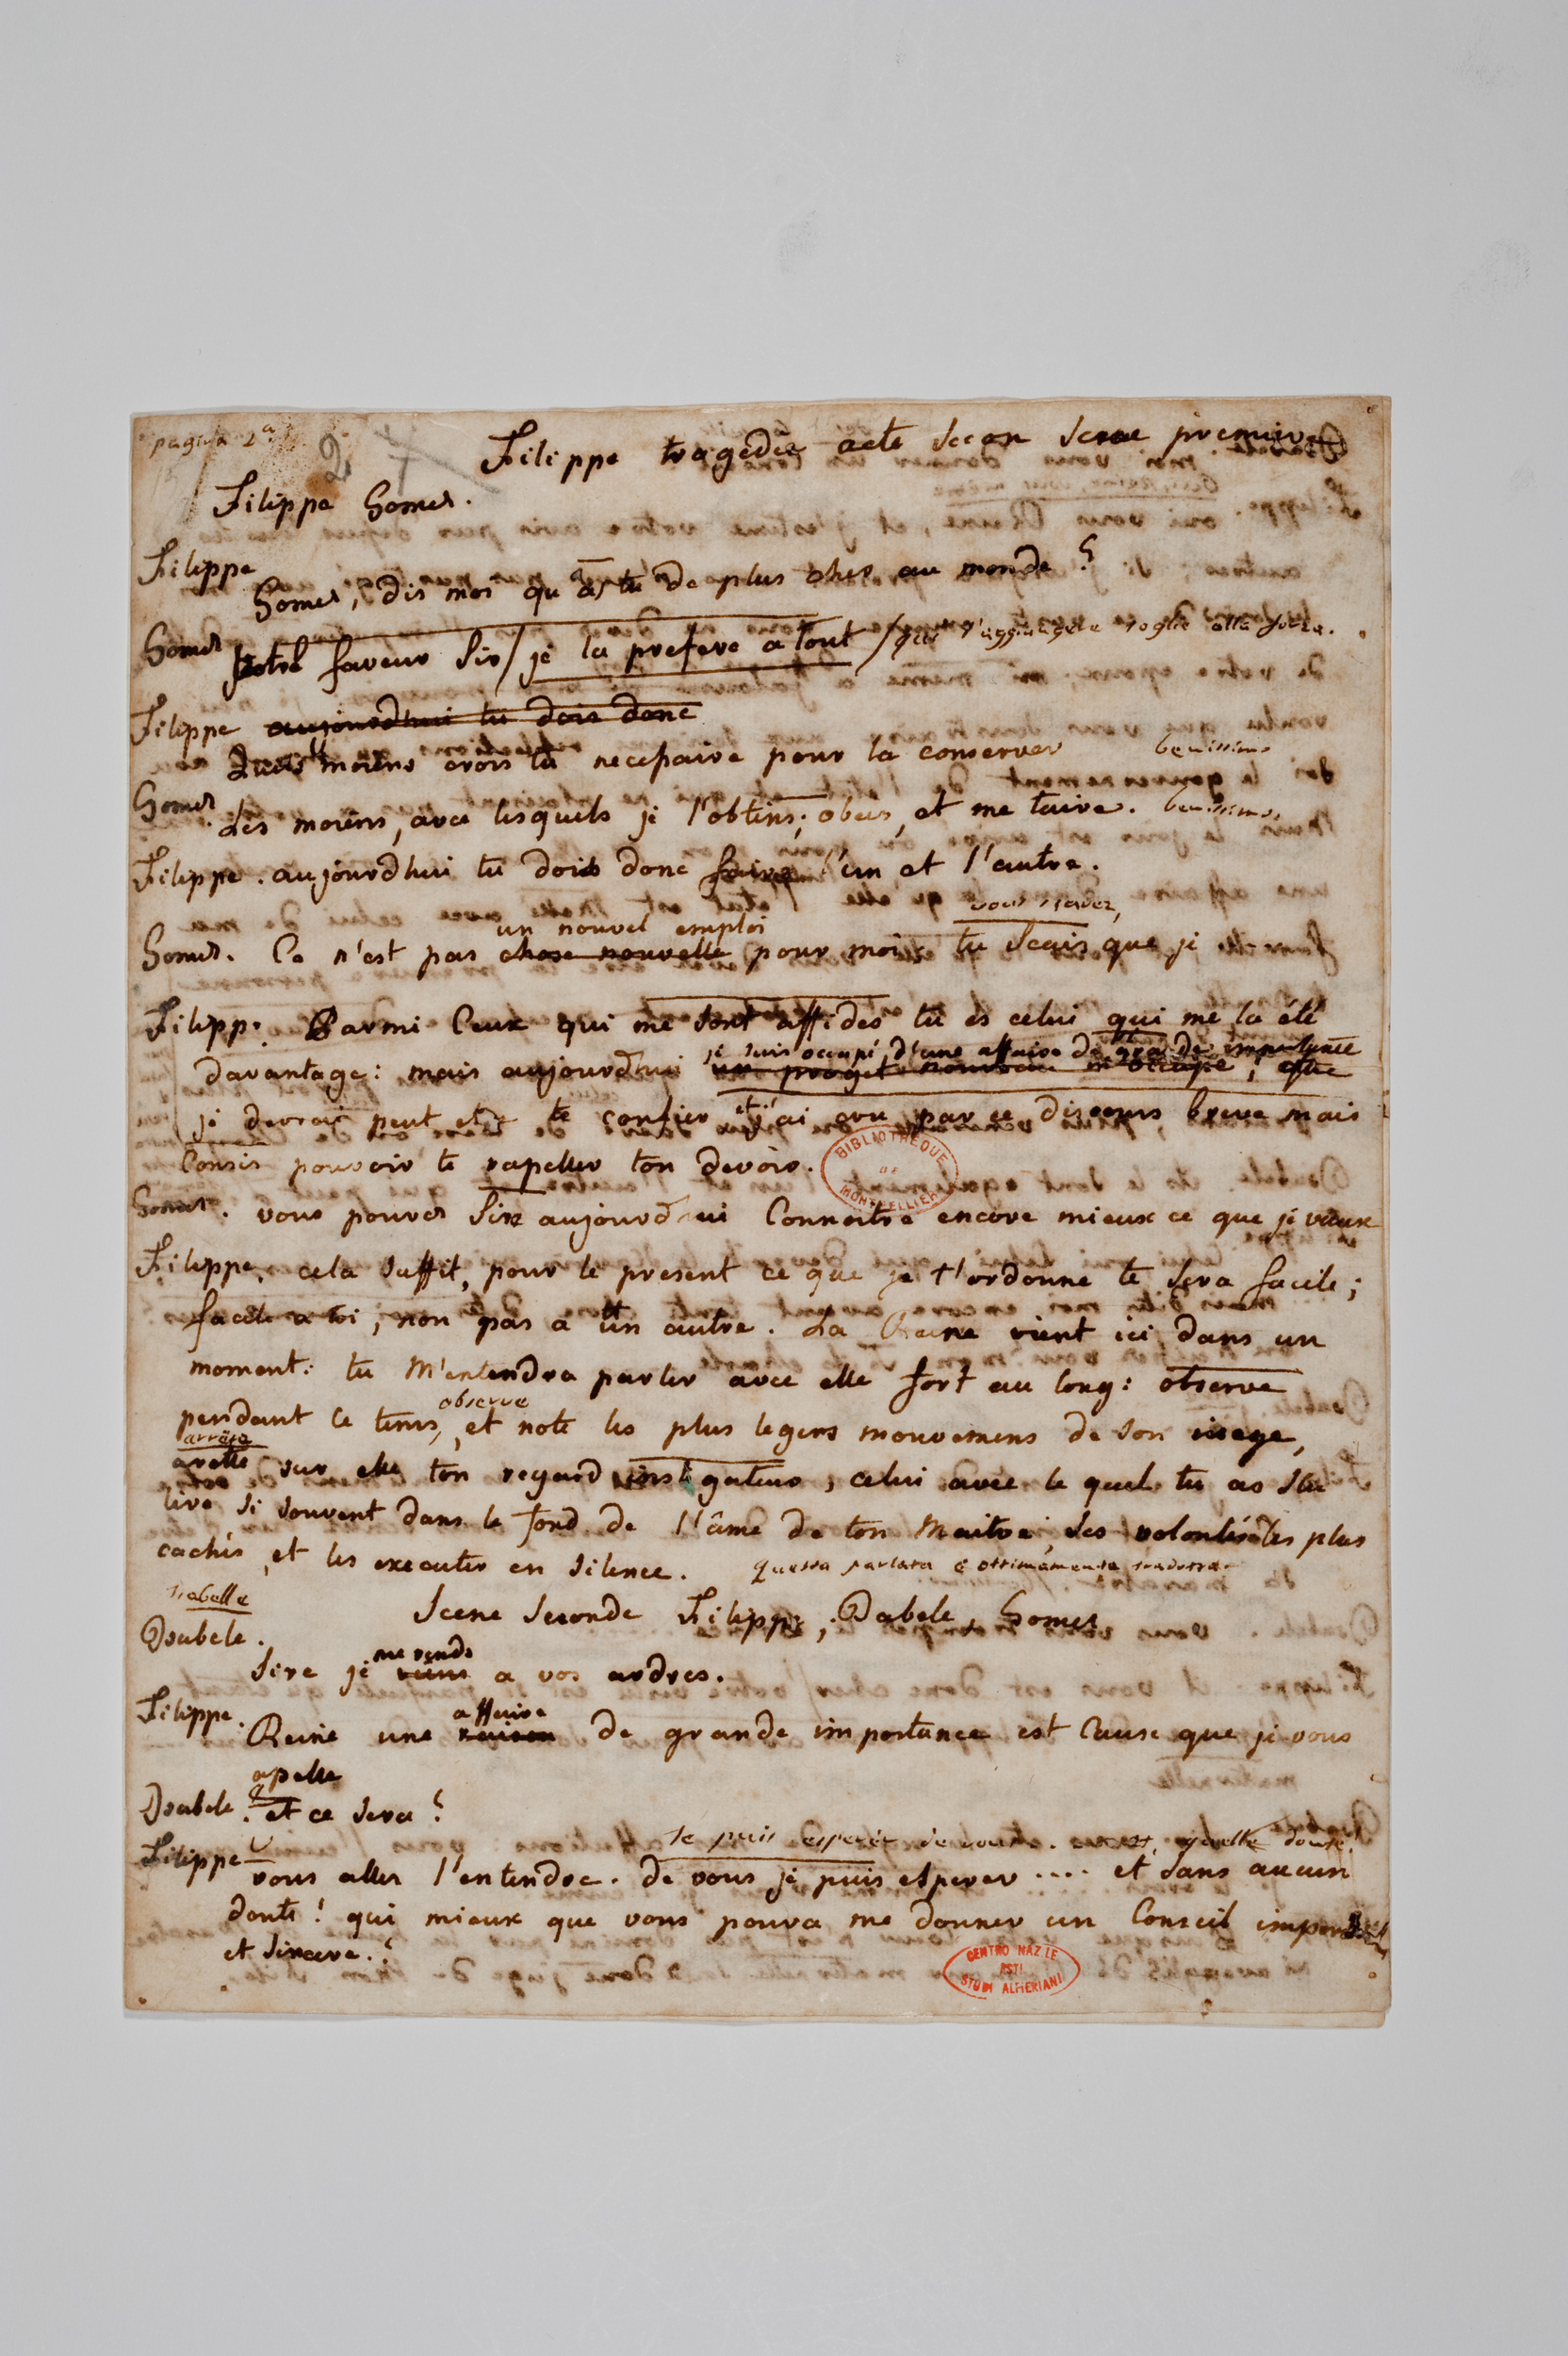 pagina 2a
2
Filippe tragedie acte secon scene premiere
Filippe Gomes.
Filippe
Gomes, dis moi qu'as tu de plus cher au monde?
Gomes votre faveur Sir / je la prefere a tout / qui l'aggiungere toglie alla forza.
Filippe aujourdhui tu dois donc
Quels moiens crois tu necessaire pour la conserver benissimo
Gomes. Les moiens, avec lesquels je l'obtins; obeir, et me taire. benissimo,
Filippe. aujourdhui tu dois donc faire l'un et l'autre.
vous scavez,
un nouvel emploi
Gomes. Ce n'est pas chose nouvelle pour moi tu Scais que je
Filipp. Parmi Ceux qui me sont affides tu es celui qui me la été
je suis occupé d'une affaire de grande importance
davantage: mais aujourdhui un proget nouveau m'occupe, que
je devrai peut etre te confier et j'ai cru par ce discours breve mais
Concis pouvoir te rapeller ton devoir.
BIBLIOTHEQUE DE MONTPELLIER
Gomes. vous pouves Sire aujourdhui Connoitre encore mieux ce que je vaux
Filippe. cela Suffit, pour le present ce que je t'ordonne te Sera facile;
facile a toi, non pas a un autre. La Reine vient ici dans un
moment: tu M'entendra parler avec elle fort au long: observe
observe
pendant ce tems, et note les plus legers mouvemens de son visage,
arrête
arette sur elle ton regard instigateur, celui avec le quel tu as Sçu
lire Si souvent dans le fond de l'âme de ton Maitre, Ses volontés les plus
cachés, et les executer en Silence. questa parlata è ottimamente tradotta
Isabelle
Scene Seconde Filippe, Isabele, Gomes
Isabele.
me rends
Sire je viens a vos ordres.
Filippe.
affaire
Reine une raison de grande importance est Cause que je vous
apelle
Isabele. et ce Sera?
je puis esperer de vous.
Filippe
vous alles l'entendre. de vous je puis esperer .... et Sans aucun
doute! qui mieux que vous poura me donner un Conseil
et Sincere.?
CENTRO NAZ LE
DI STUDI ALFIERIANI
ASTI